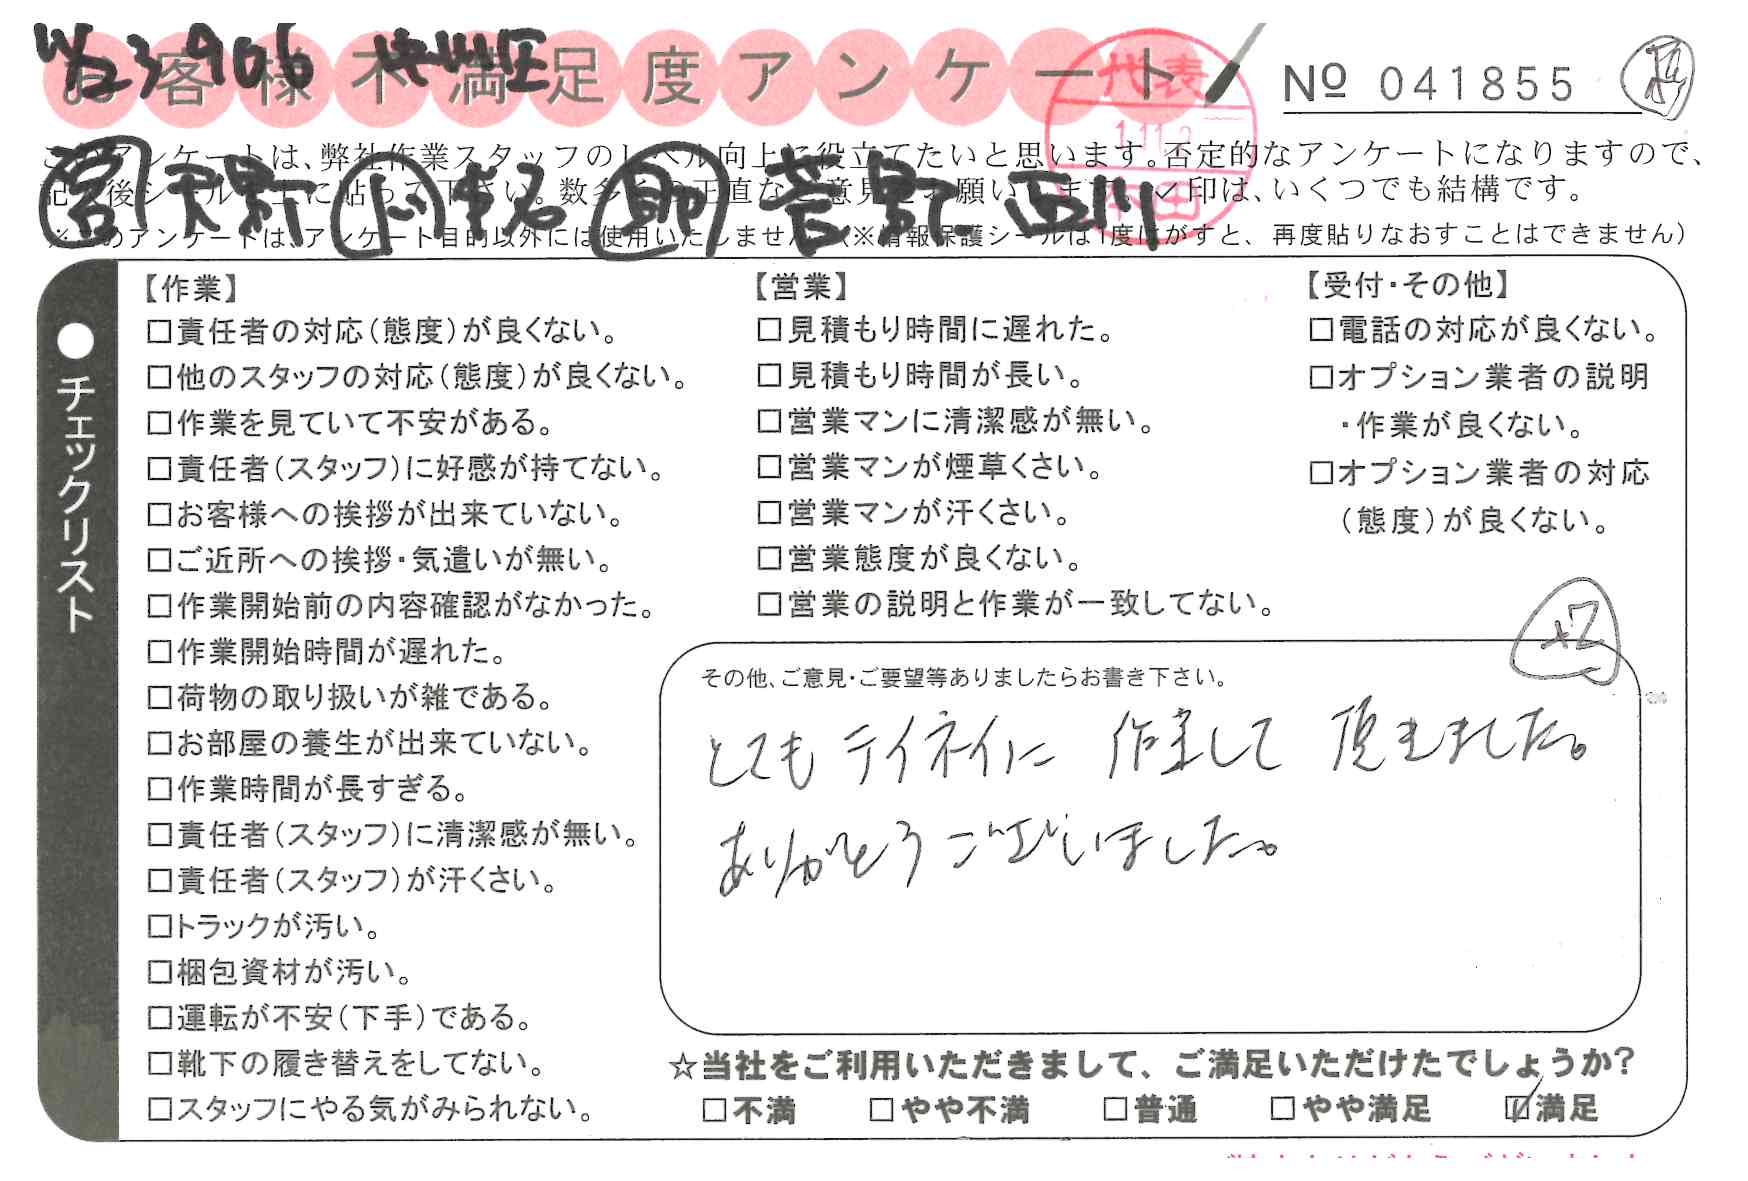 11/23 906
お客様不満足度アンケート
代表
1.11.2
本田
№ 041855
このアンケートは、弊社作業スタッフのレベル向上に役立てたいと思います。否定的なアンケートになりますので、
記入後シールを上に貼って下さい。数多くの正直なご意見をお願いします。✓印は、いくつでも結構です。
※このアンケートは、アンケート目的以外には使用いたしません。(※情報保護シールは1度はがすと、再度貼りなおすことはできません)
●チェックリスト
【作業】
□責任者の対応(態度)が良くない。
□他のスタッフの対応(態度)が良くない。
□作業を見ていて不安がある。
□責任者(スタッフ)に好感が持てない。
□お客様への挨拶が出来ていない。
□ご近所への挨拶・気遣いが無い。
□作業開始前の内容確認がなかった。
□作業開始時間が遅れた。
□荷物の取り扱いが雑である。
□お部屋の養生が出来ていない。
□作業時間が長すぎる。
□責任者(スタッフ)に清潔感が無い。
□責任者(スタッフ)が汗くさい。
□トラックが汚い。
□梱包資材が汚い。
□運転が不安(下手)である。
□靴下の履き替えをしてない。
□スタッフにやる気がみられない。
【営業】
□見積もり時間に遅れた。
□見積もり時間が長い。
□営業マンに清潔感が無い。
□営業マンが煙草くさい。
□営業マンが汗くさい。
□営業態度が良くない。
□営業の説明と作業が一致してない。
【受付・その他】
□電話の対応が良くない。
□オプション業者の説明
・作業が良くない。
□オプション業者の対応
(態度)が良くない。
その他、ご意見・ご要望等ありましたらお書き下さい。
とてもテイネイに 作業して 頂きました。
ありがとうございました。
☆当社をご利用いただきまして、ご満足いただけたでしょうか?
□不満 □やや不満 □普通 □やや満足 ☑満足